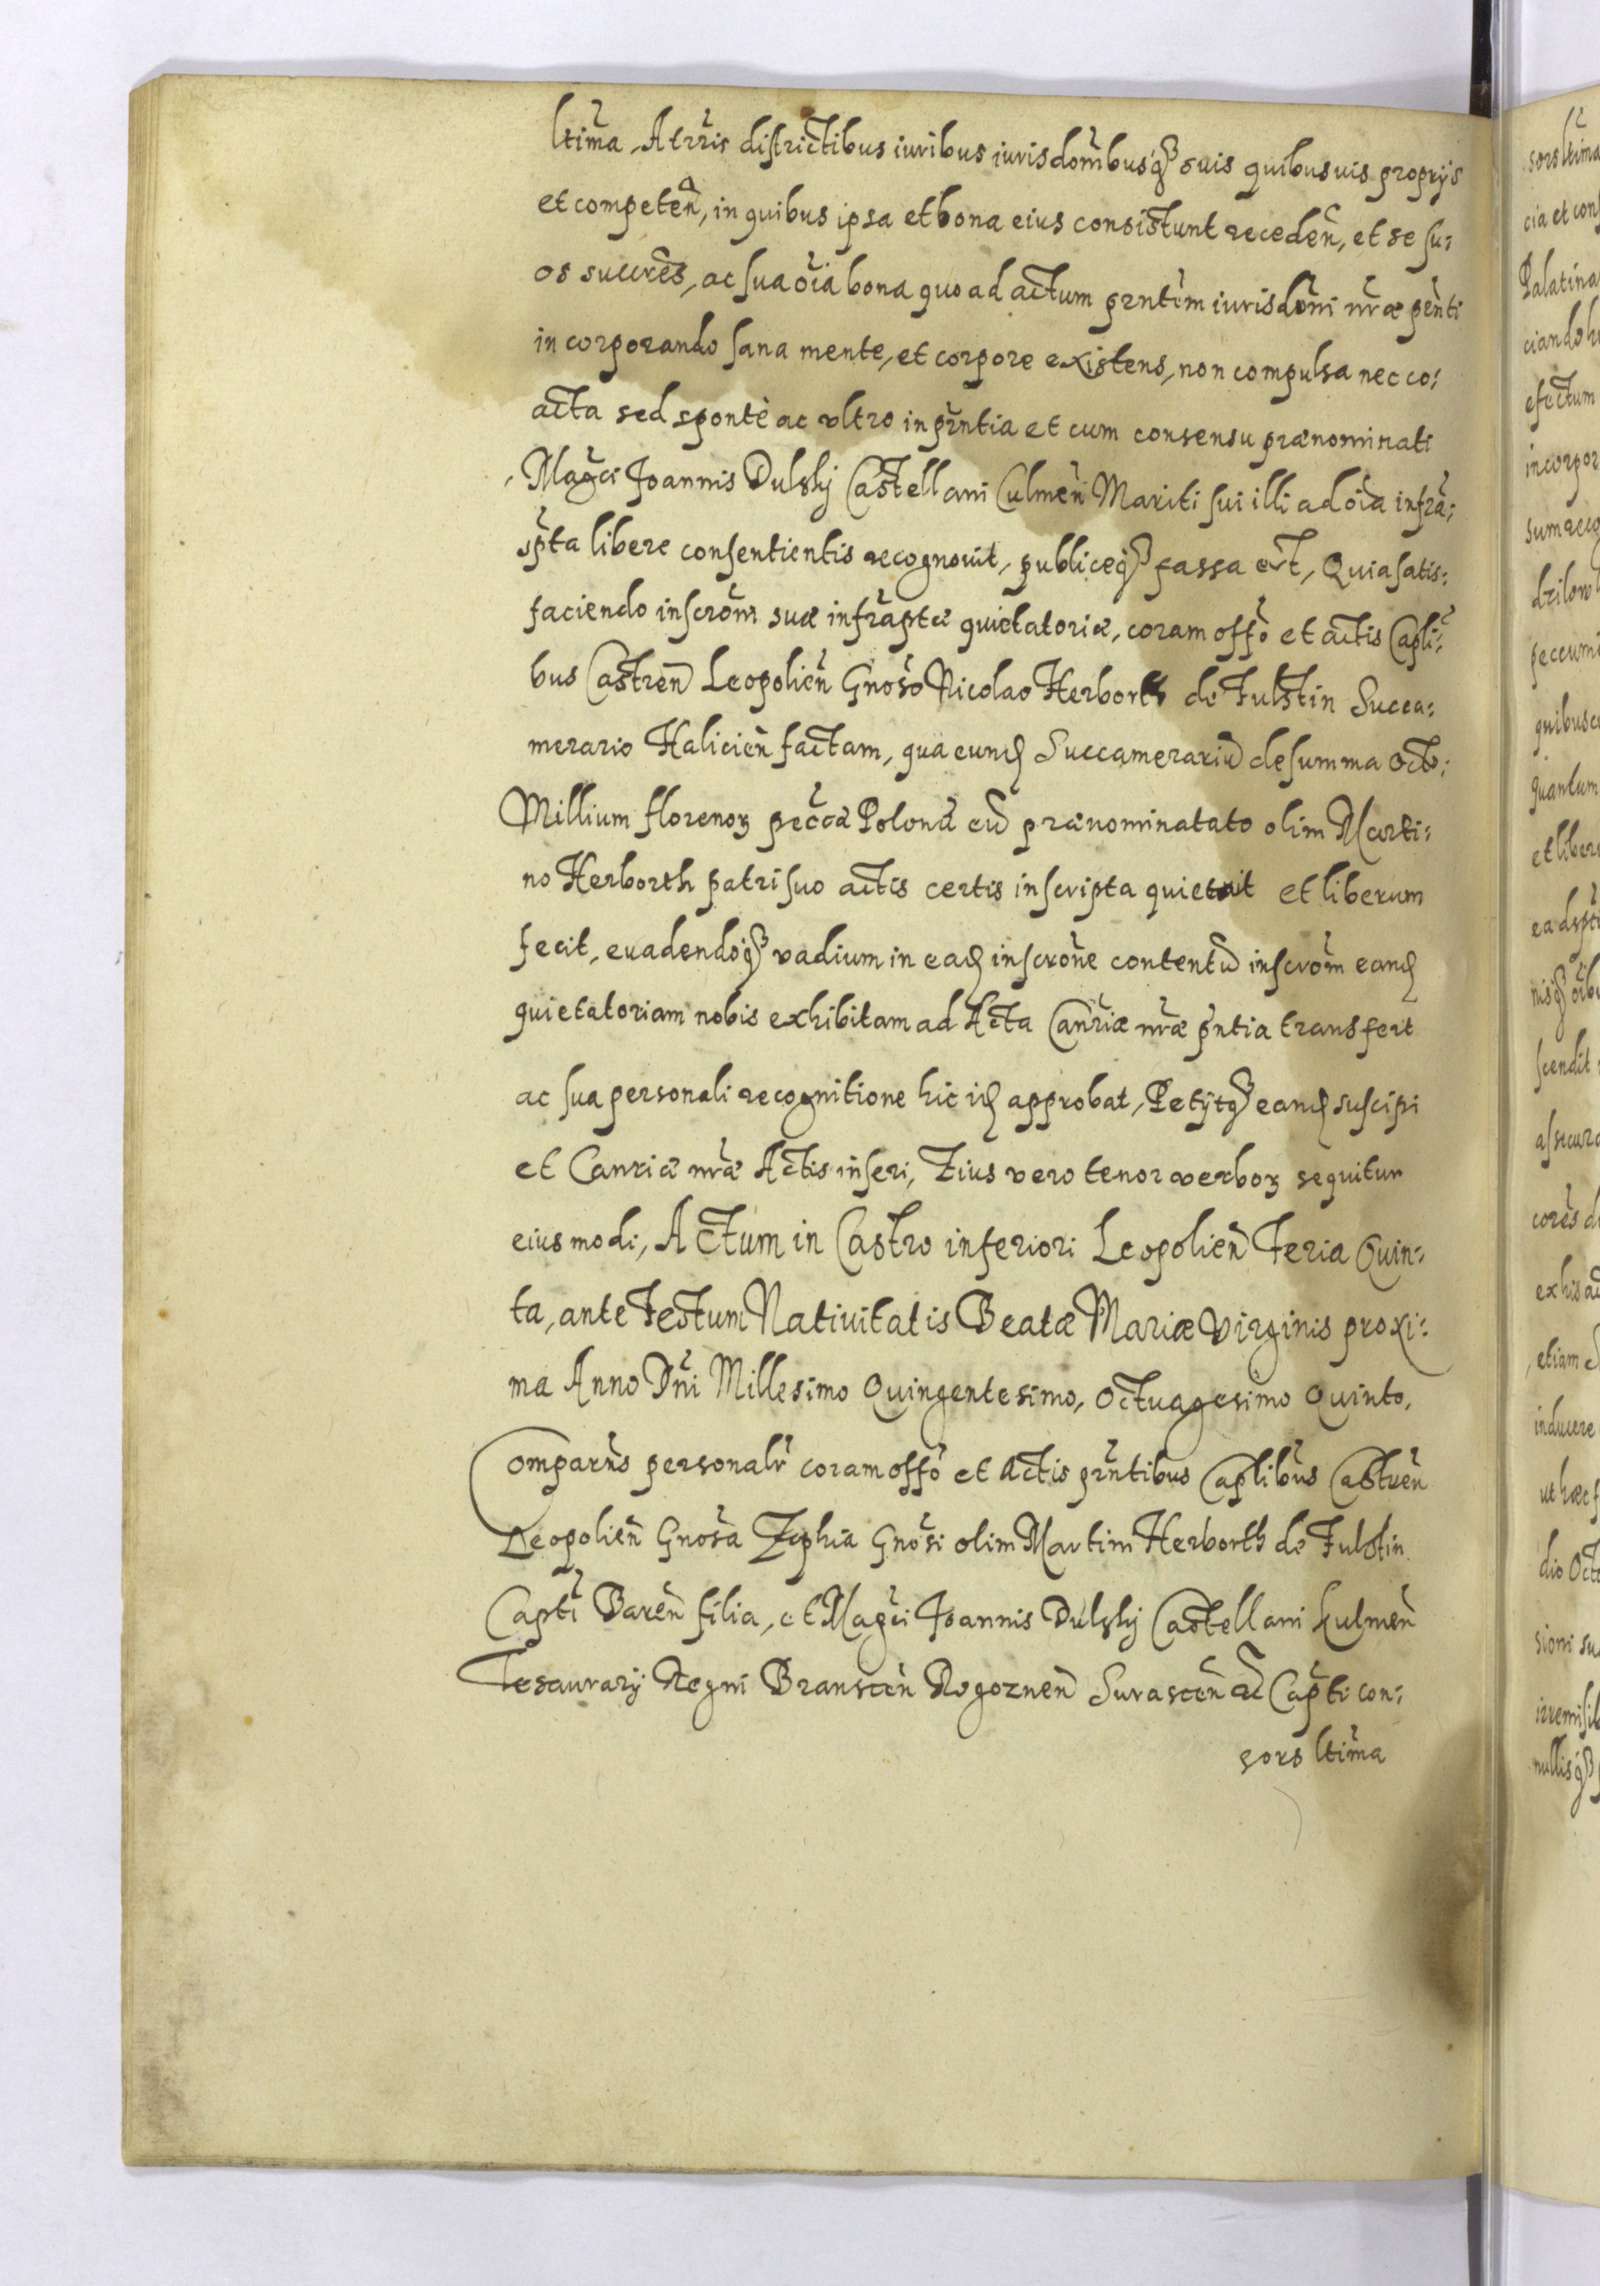 ltima, A trris districtibus iuribus iurisdonibusq suis quibusuis proprys
et competen, in quibus ipsa et bona eius consistunt receden, et se su:
os succres, ac sua oia bona quo ad actum prntem iurisdoni nræ pnti
incorporando sana mente, et corpore existens, non compulsa nec co:
acta sed sponte ac ultro in prntia et cum consensu prænominati
Magci Joannis Dulsky Castellani Culmen Mariti sui illi ad oia infra:
spta libere consentientis recognouit, publiceq fassa est, Quia satis:
faciendo inscrom suæ infrapta quietatoriæ, coram offo et actis Capli:
bus Castren Leopolien Gnoso Nicolao Herborth de Fulstin Succa:
merario Halicien factam, qua eund Succamerariu de summa octo:
Millium florenor pecca Polona cu prænominatato olim Marti:
no Herborth patri suo actis certis inscripta quietuit et liberum
fecit, euadendoq vadium in ead inscrone contentu inscrom eand
quietatoriam nobis exhibitam ad Acta Canriæ nræ pntia transfert
ac sua personali recognitione hic id approbat, Petytq eand suscipi
et Canriæ nræ Actis inseri, Eius vero tenor verbor sequitur
eiusmodi, Actum in Castro inferiori Leopolien Feria Quin:
ta, ante Festum Natiuitatis Beatæ Mariæ Virginis proxi:
ma Anno Dni Millesimo Quingentesimo, Octuagesimo Quinto,
Comparens personalr coram offo et Actis prntibus Caplibus Castren
Leopolien Gnosa Zophia Gnosi olim Martini Herborth de Fulstin
Capti Baren filia, et Magci Joannis Dulsky Castellani Kulmen
Tesaurary Regni Branscen Rogoznen Surascen Capti con:
sors ltima
sors ltima
cia et cons
Palatina
efectum
incorpor
quantum
et liber
scendit
cores
ex his
etiam
inducere
ut hæc
dio Octo
sioni su
nullisq